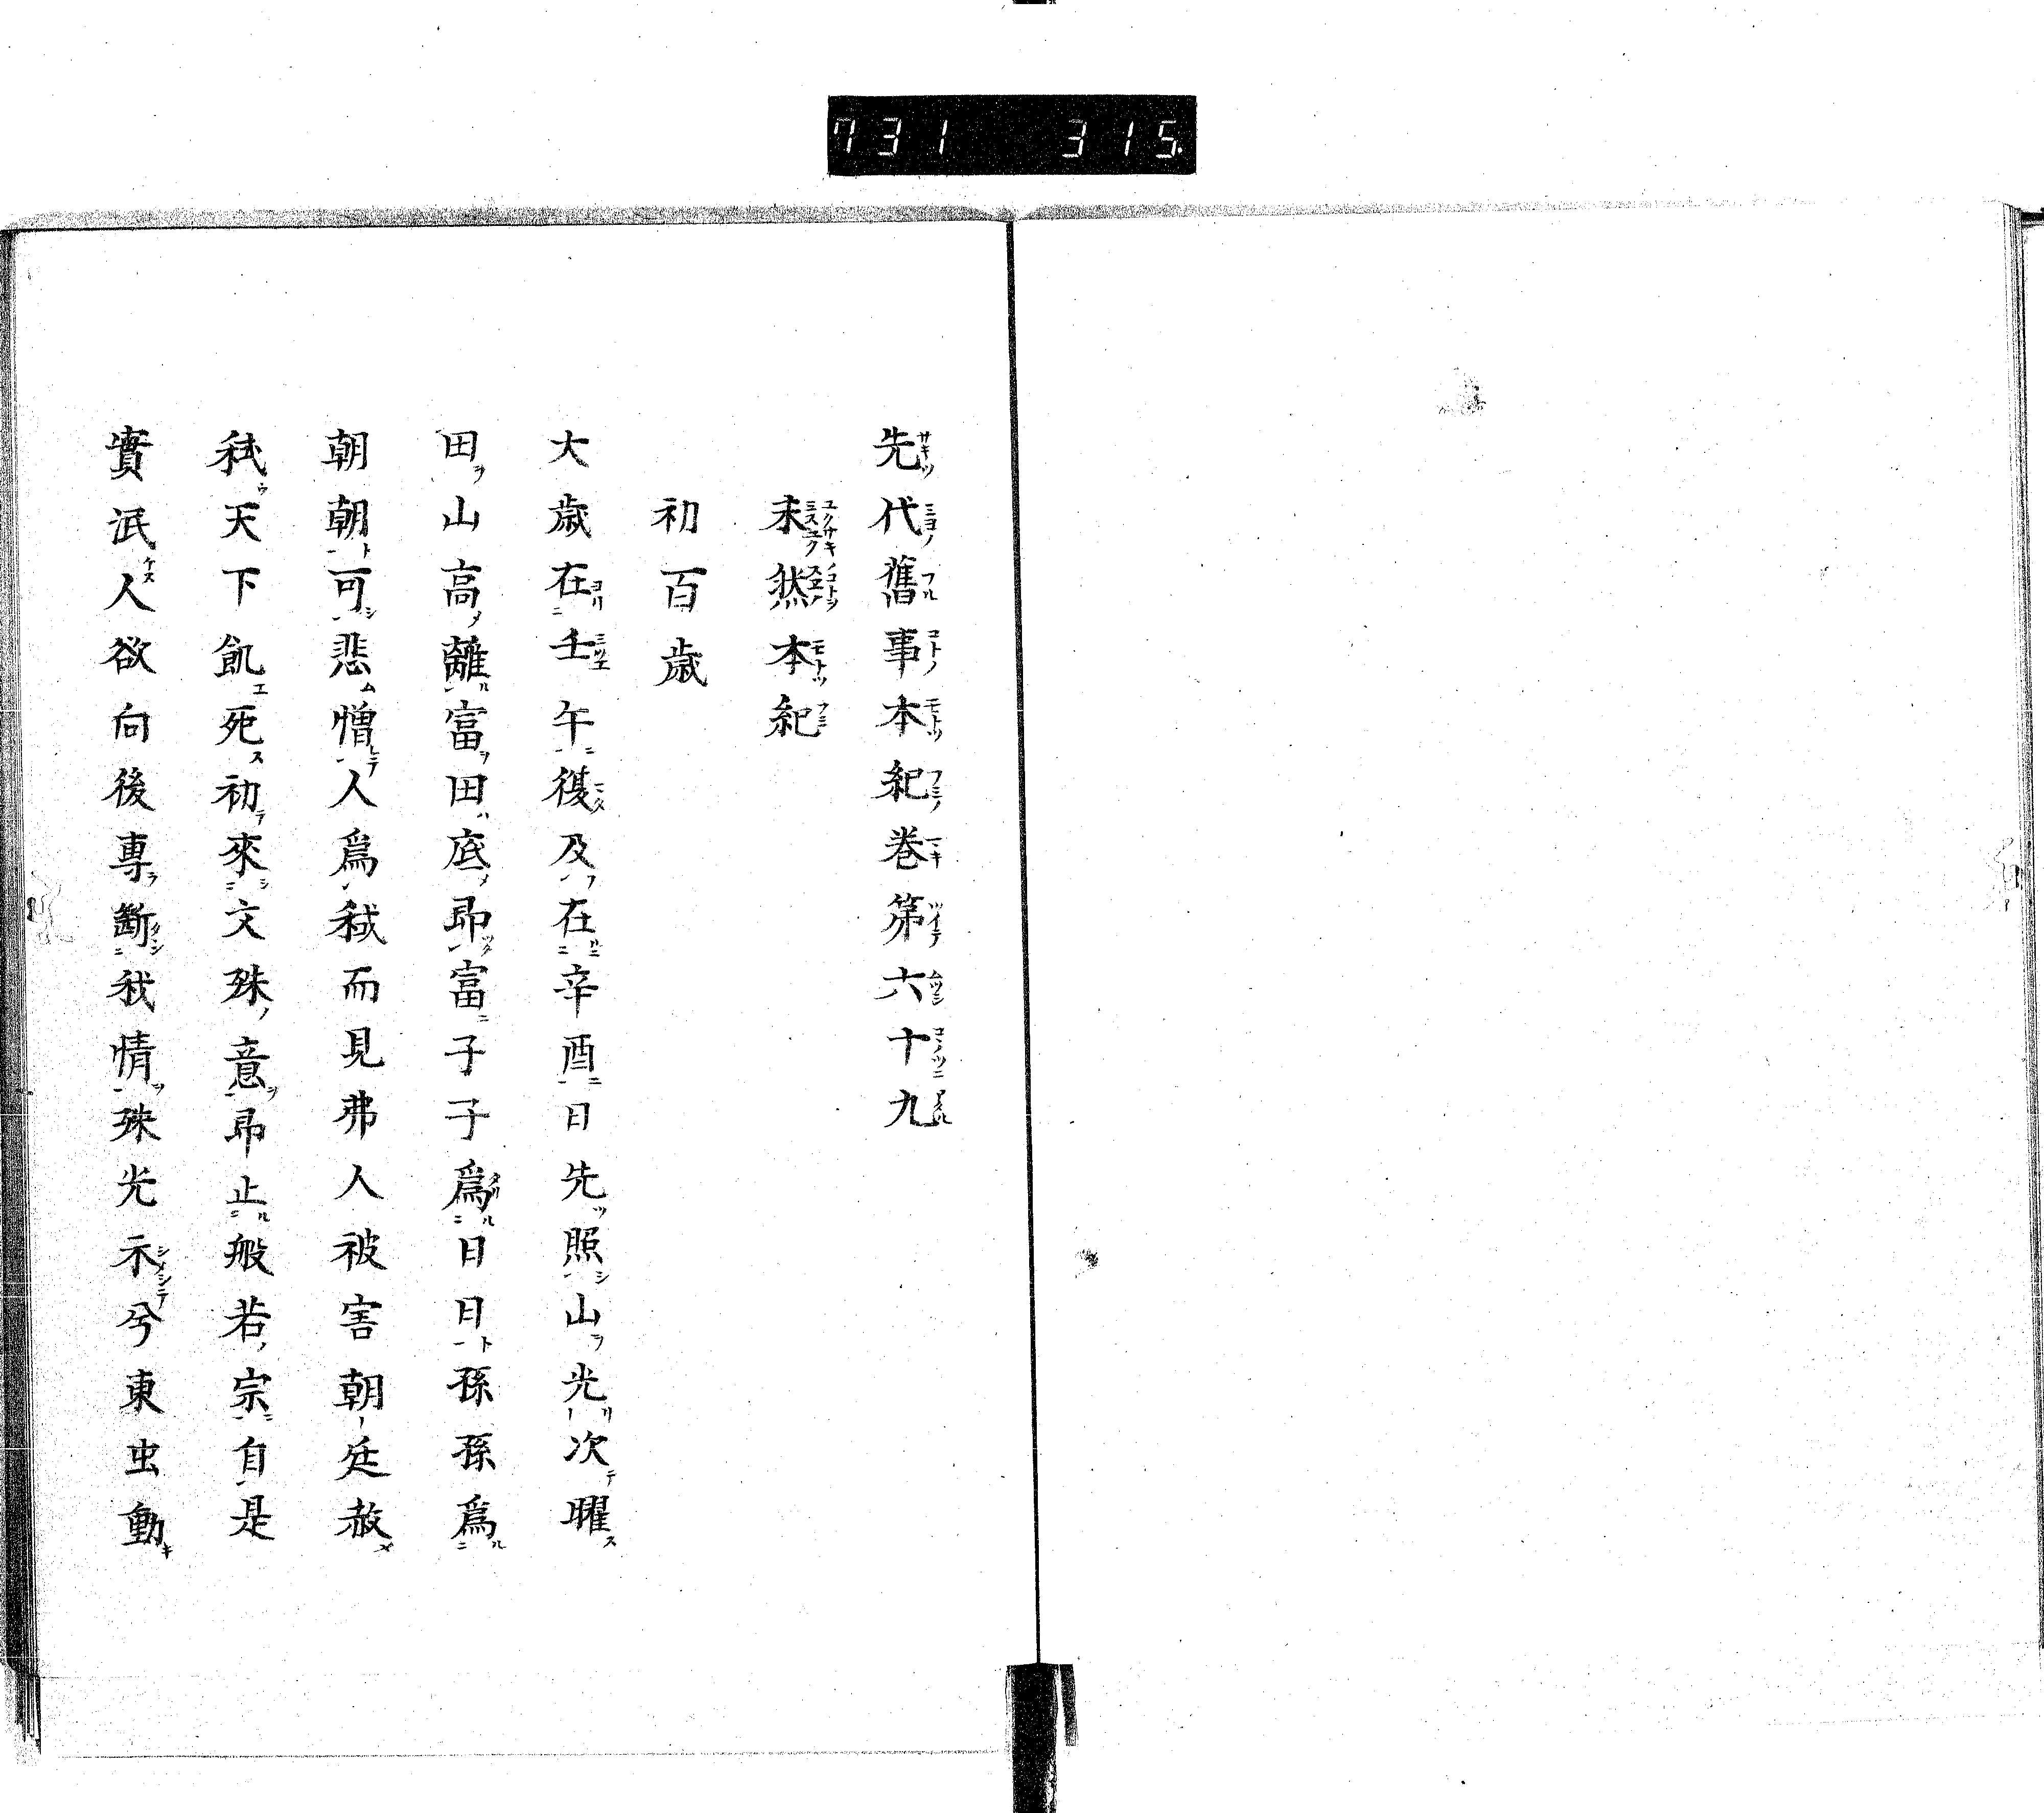 731 315
先代舊事本紀巻第六十九
未然本紀
初百歳
大歳在壬午復及在辛酉日先照山光次曜
田山高離富田底昴富子子爲日日孫孫爲
朝朝可悲憎人爲秡而見弗人被害朝廷赦
秡天下飢死初來文殊意昴止般若宗自是
實泯人欲向後專斷我情殊光示兮東虫動